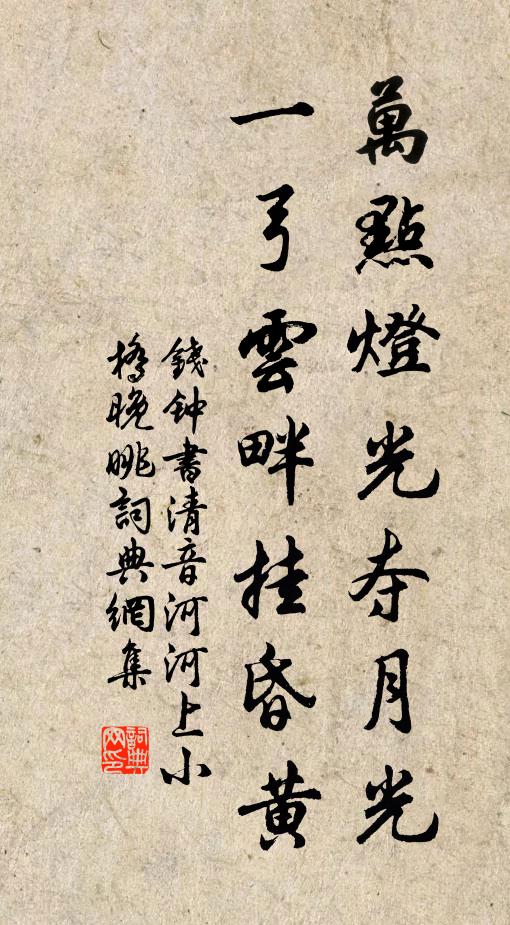 萬點燈光夺月光
一弓雲畔挂昏黄
錢钟書清音河河上小
橋晚眺詞典網集
詞典網印